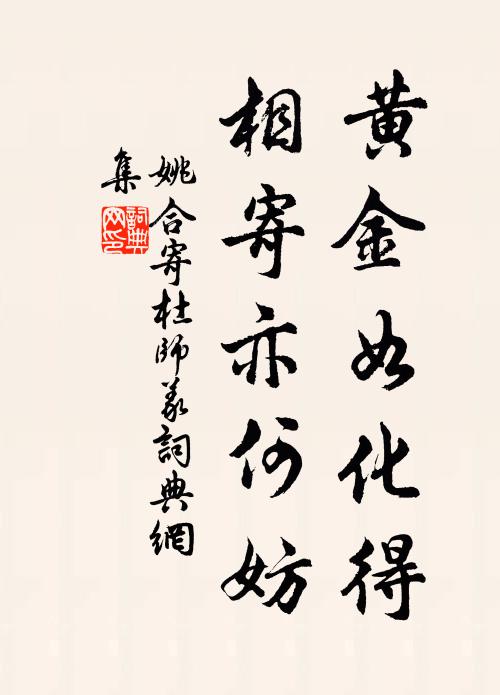 黄金如化得
相寄亦何妨
姚合寄杜師義詞典網
集
詞典
网印